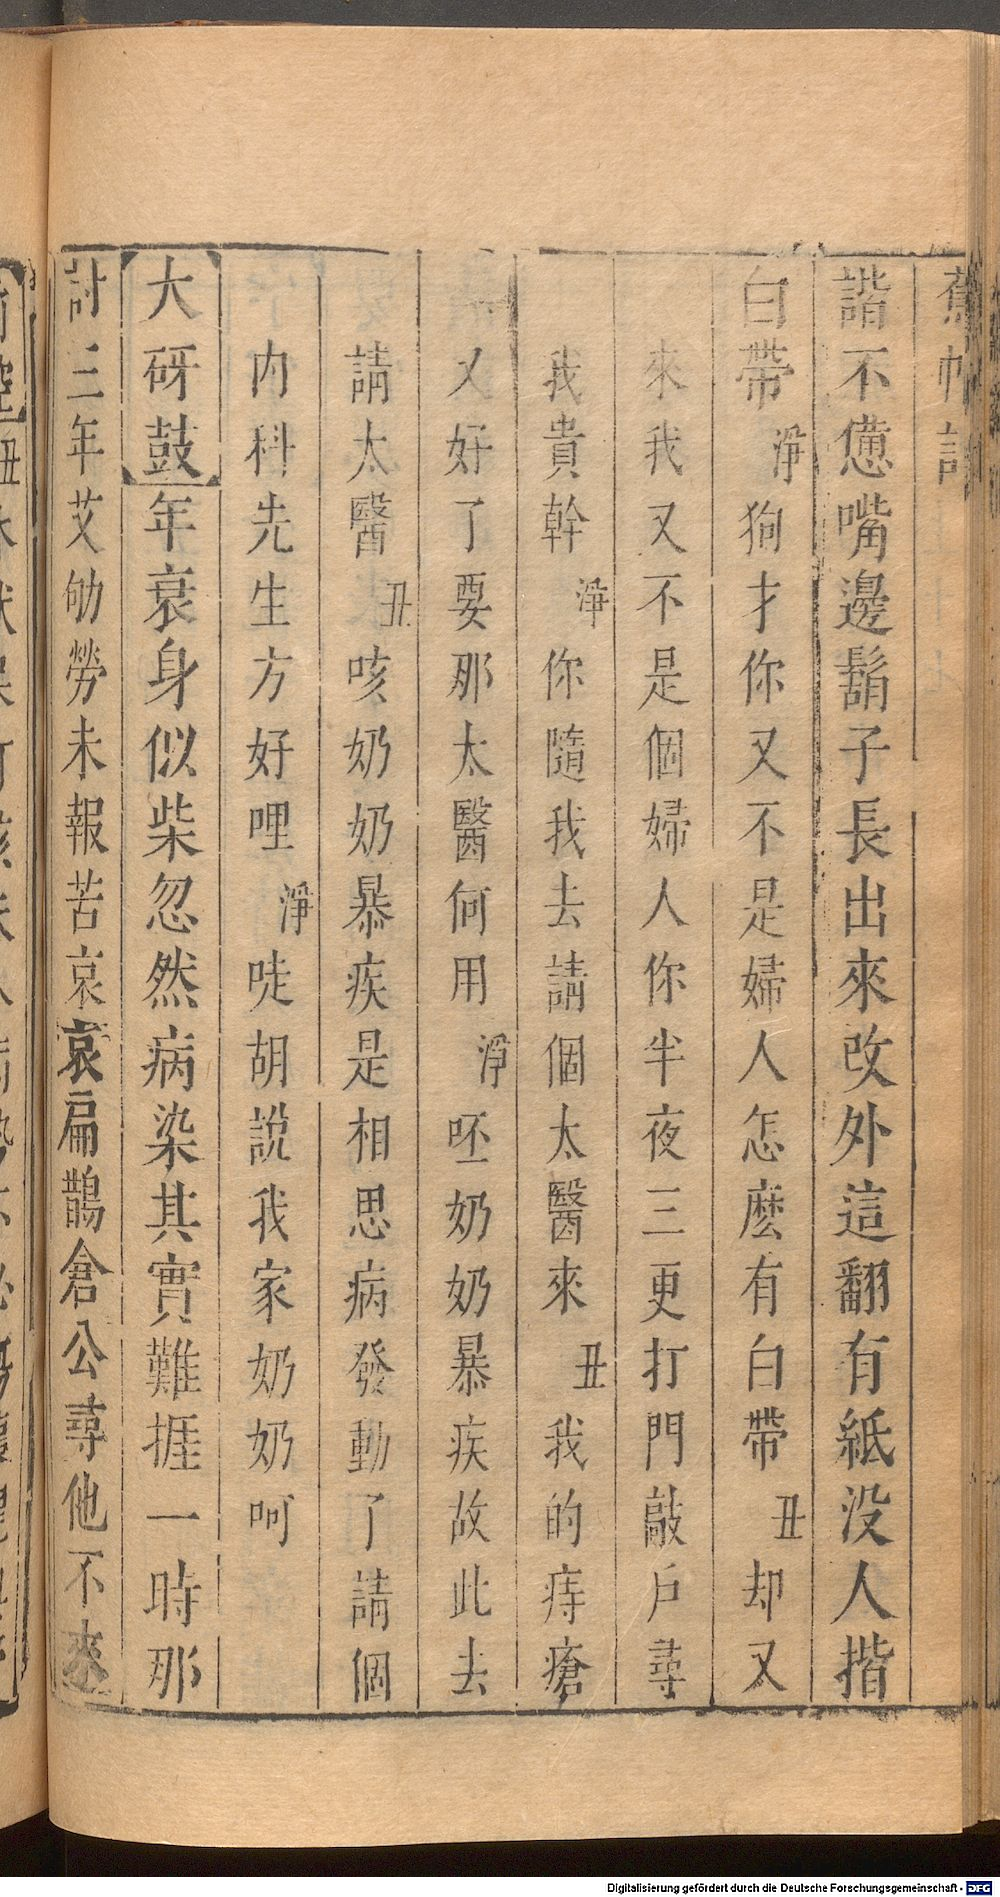 蕉帕記
諧不憊嘴邊鬍子長出來改外這翻有紙没人揩
白帶淨狗才你又不是婦人怎麽有白帶丑却又
來我又不是個婦人你半夜三更打門敲戶尋
我貴幹淨你隨我去請個太醫來丑我的痔瘡
又好了要那太醫何用淨呸奶奶暴疾故此去
請太醫丑咳奶奶暴疾是相思病發動了請個
内科先生方好哩淨唗胡說我家奶奶呵
大砑鼓年衰身似柴忽然病染其實難捱一時那
討三年艾劬勞未報苦哀哀扁鵲倉公尋他不來
Digitalisierung gefördert durch die Deutsche Forschungsgemeinschaft - DFG